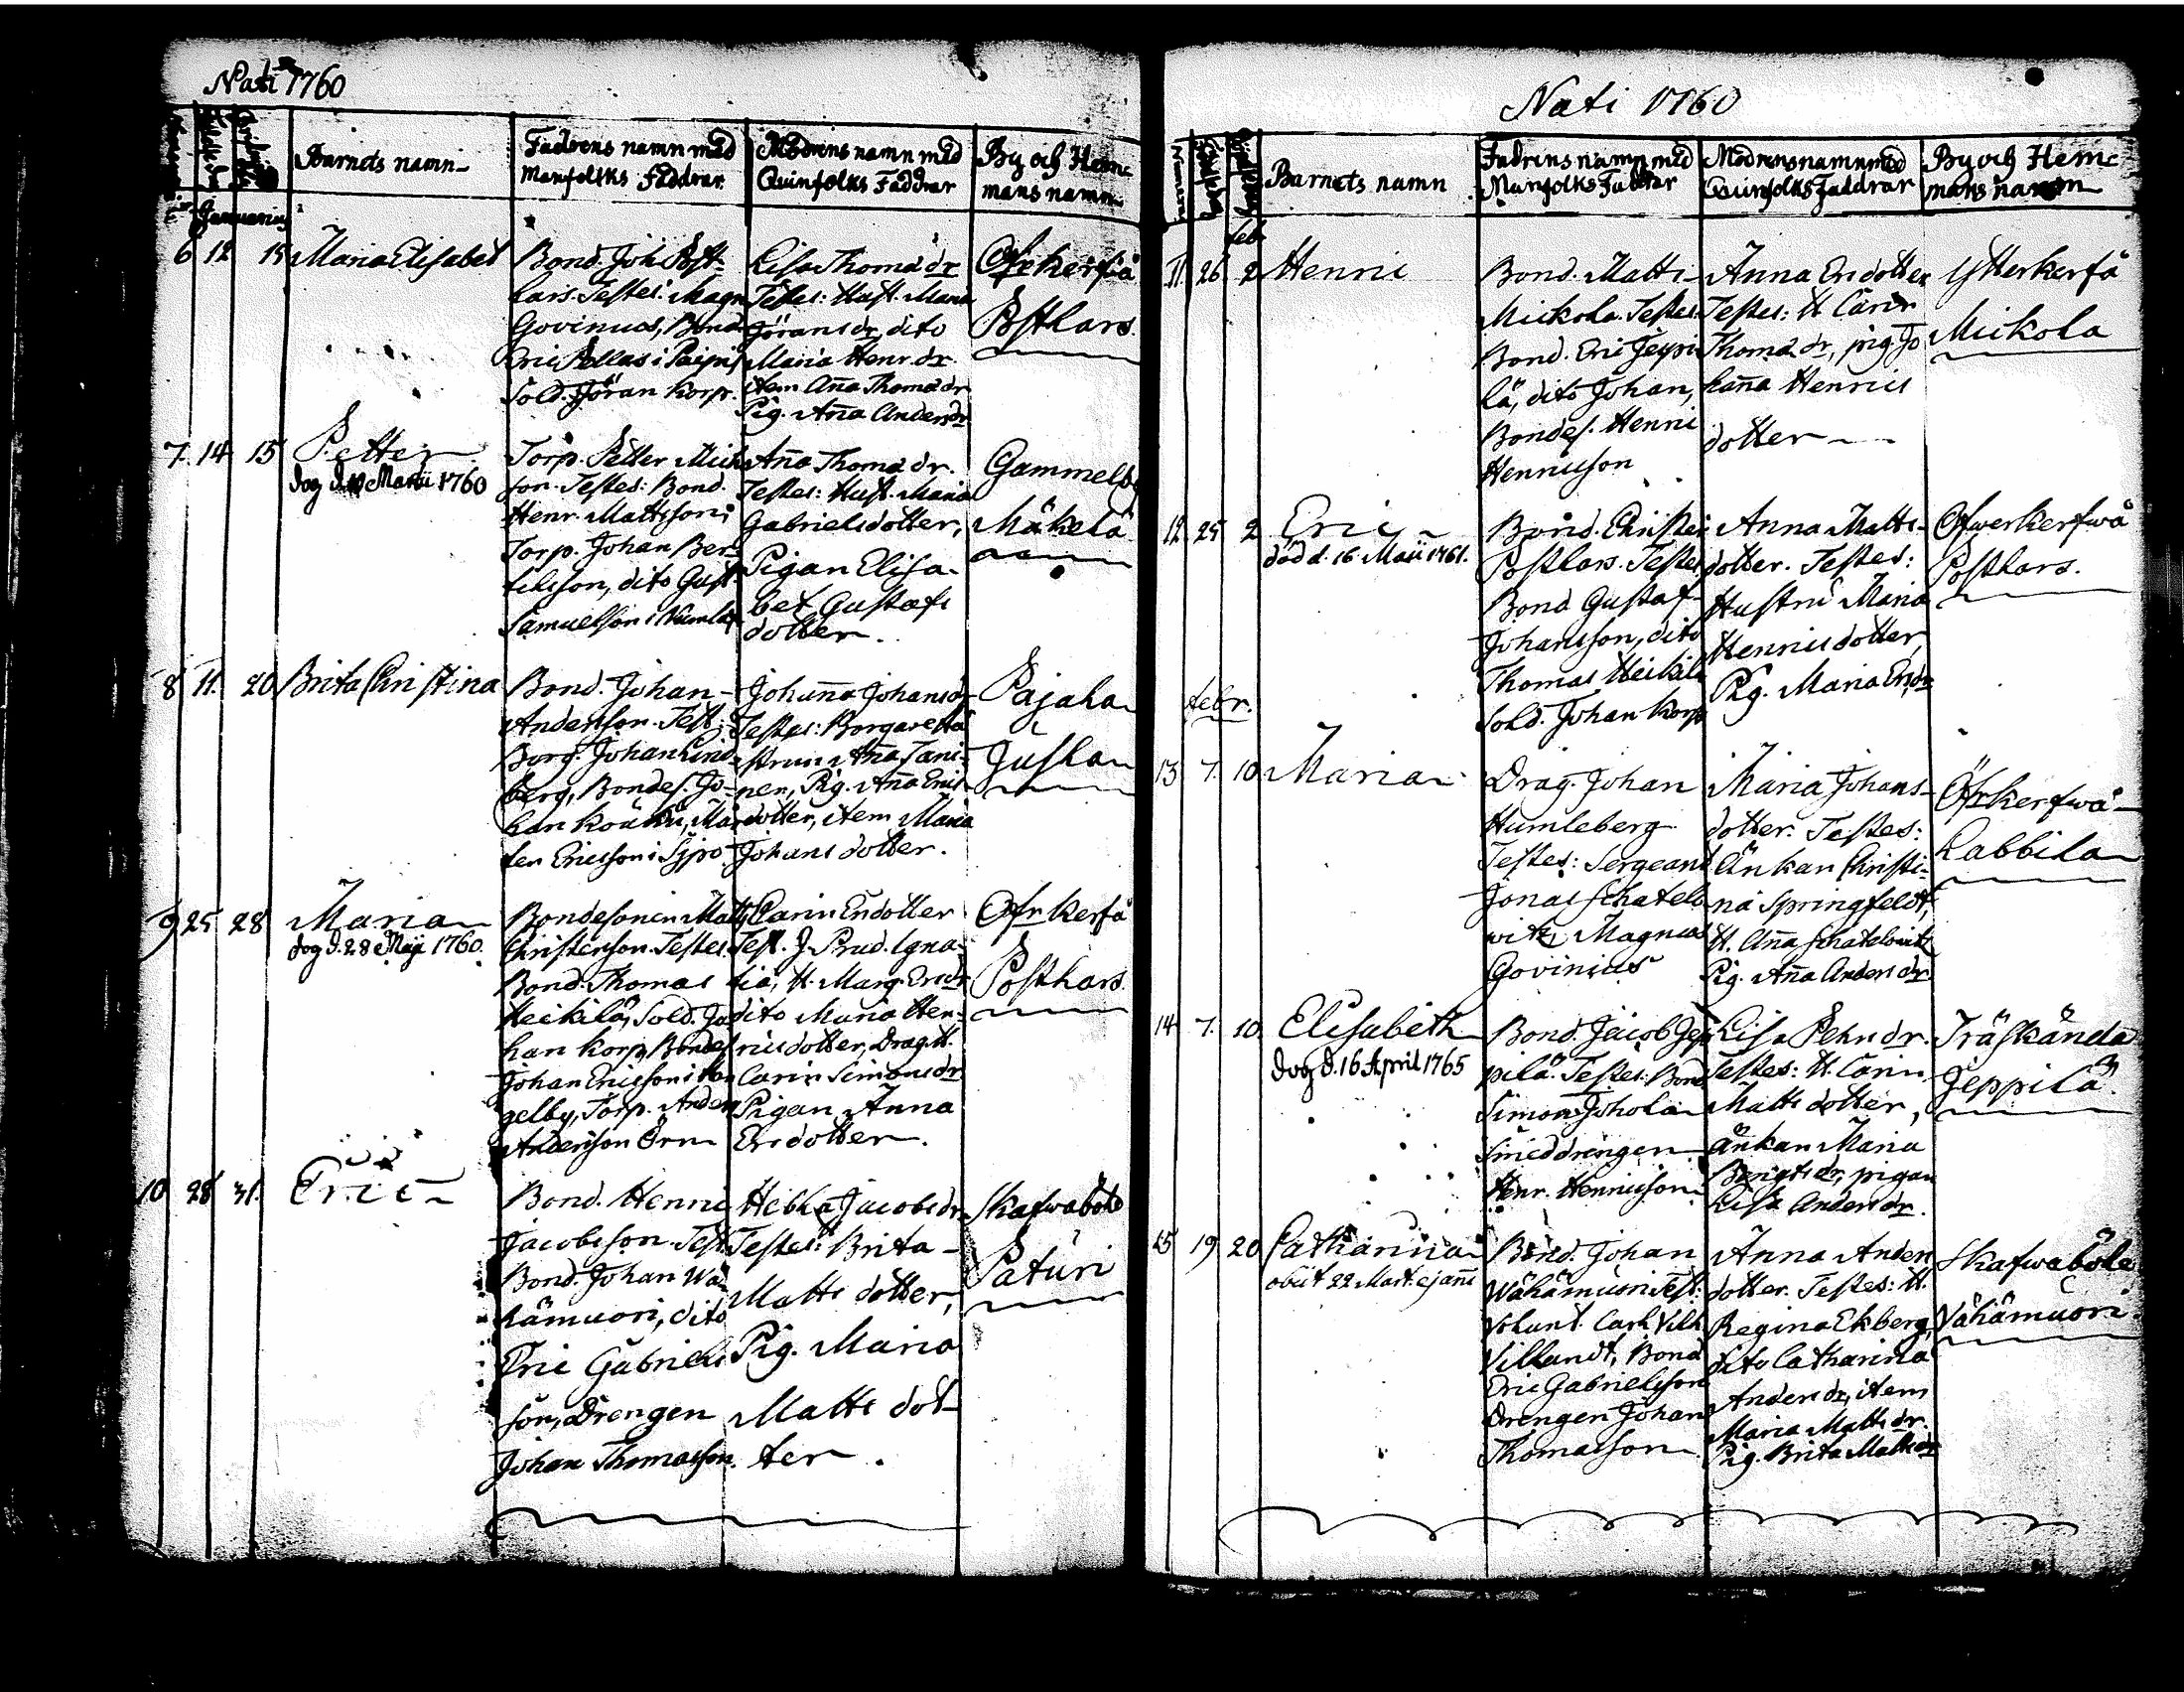 Nati 1760
Barnets namn
Fadrens namn med
Manfolks Faddrar
Modrens namn med
Quinfolks Faddrar
By och Hem-
mans namn
Januarius
6 12 15 Maria Elisabet
Bond. Joh. Post-
lars. Testes: Magn
Govinius, Bond
Eric Pellas i Paipis
Sold. Jöran Korp.
Lisa Thomæ dr
Testes: Hust. Maria
Jörans dr, dito
Maria Henr. dr
item Aña Thomæ dr
Pig. Aña Anders dr
Öfr kerfwå
Postlars
7. 14 15 Petter
dog d. 10 Martii 1760
Torp. Petter Mich
son. Testes: Bond.
Henr. Mattsson,
Torp. Johan Ber-
tilsson, dito Gust.
Samuelsson i
Aña Thomæ dr.
Testes: Hust. Maria
Gabrielsdotter,
Pigan Elisa-
bet Gustafs
dotter.
Gammelby
Mäkelä
8 11. 20 Brita Christina
Bond. Johan
Andersson. Test:
Borg. Johan Lind-
berg, Bondes. Jo-
han Kouku, Mår
ten Ericsson i Sjpo
Johaña Johans dr
Testes: Borgare Hu
strun Aña Tani-
nen, Pig. Aña Erics
dotter, item Maria
Johans dotter.
Pajala
Jusla
9 25 28 Maria
dog d. 28 Maji 1760.
Bondesonen Matts
Christersson. Testes
Bond. Thomas
Heikilä, Sold. Jo
han Korp, Bondes
Johan Ericsson i Han
gelby, Torp. Anders
Andersson Örn
Carin Ersdotter
Test. J. Prud. Igna-
tia, H. Marg. Ersdr
dito Maria Hen-
ricsdotter, Drag. H.
Carin Simonsdr
Pigan Anna
Ersdotter.
Öfr kerfå
Postlars
10 28 31. Eric
Bond. Henric
Jacobsson. Test
Bond. Johan Wä
hämuori, dito
Eric Gabriels
son, Drengen
Johan Thomasson.
Hebla Jacobs dr
Testes: Brita
Matts dotter,
Pig. Maria
Matts dot-
ter.
Skafwaböle
Paturi
Nati 1760
Barnets namn
Fadrens namn med
Manfolks Faddrar
Modrens namn med
Quinfolks Faddrar
By och Hem-
mans namn
feb
11. 26 2 Henric
Bond. Matts
Mickola. Testes
Bond. Eric Jeppi
lä, dito Johan,
Bondes. Henric
Henricsson
Anna Ersdotter
Testes: H. Carin
Thomæ dr, pig. Jo
haña Henrics
dotter
Ytterkerfå
Mickola
12 25 2 Eric
död d. 16. Maii 1761.
Bond. Christer
Postlars. Testes
Bond Gustaf
Johansson, dito
Thomas Heikilä
Sold. Johan Korp
Anna Matts-
dotter. Testes:
Hustru Maria
Henricsdotter,
Pig. Maria Ersdr
Öfwerkerfwå
Postlars.
febr.
13 7. 10 Maria
Drag. Johan
Humleberg
Testes: Sergeant
Jonas Schatelo
witz, Magnus
Govinius
Maria Johans-
dotter. Testes:
Änkan Christi-
na Springfeldt,
H. Aña Schatelowitz
Pig. Aña Anders dr
Öfr kerfwå
Labbila
14 7. 10 Elisabeth
dog d. 16 April 1765
Bond. Jacob Jep
pilä. Testes: Bond
Simon Johola
Smeddrengen
Henr. Henricsson
Lisa Pehrs dr.
Testes: H. Carin
Matts dotter,
änkan Maria
Bengts dr, pigan
Lisa Anders dr.
Träskända
Jeppilä
15 19 20 Catharina
obiit 22 Mart. ej. anni
Bond. Johan
Wähämuori Test:
Volunt. Carl Vilh
Villandt, Bond
Eric Gabrielsson
Drengen Johan
Thomasson
Anna Anders
dotter. Testes: H.
Regina Ekberg,
dito Catharina
Anders dr, item
Maria Matts dr.
Pig. Brita Matts dr
Skafwaböle
Vähämuori